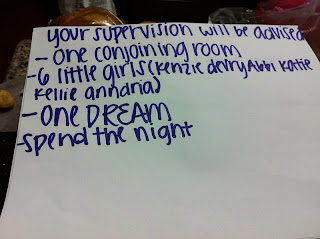 your supervision will be advised
- one conjoining room
-6 little girls (kenzie devry Abbi katie
kellie annaria)
- one DREAM
-spend the night